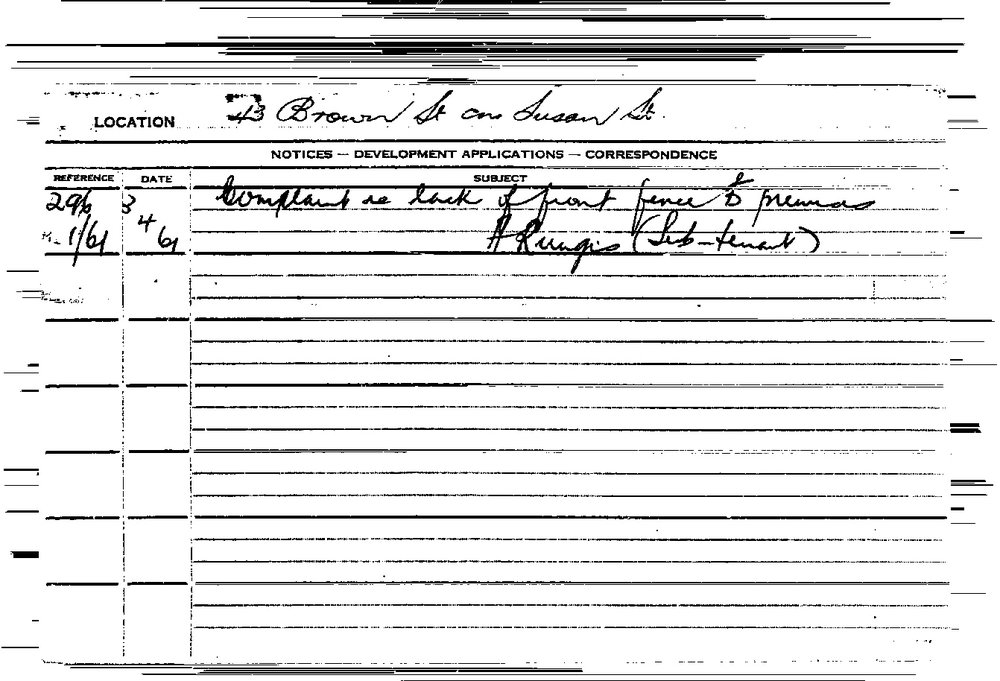 LOCATION 43 Brown St cnr Susan St.
NOTICES — DEVELOPMENT APPLICATIONS — CORRESPONDENCE
REFERENCE DATE SUBJECT
296 3 Complaint re lack of front fence to premises
1/61 4 61 A Rungis (Sub-tenant)